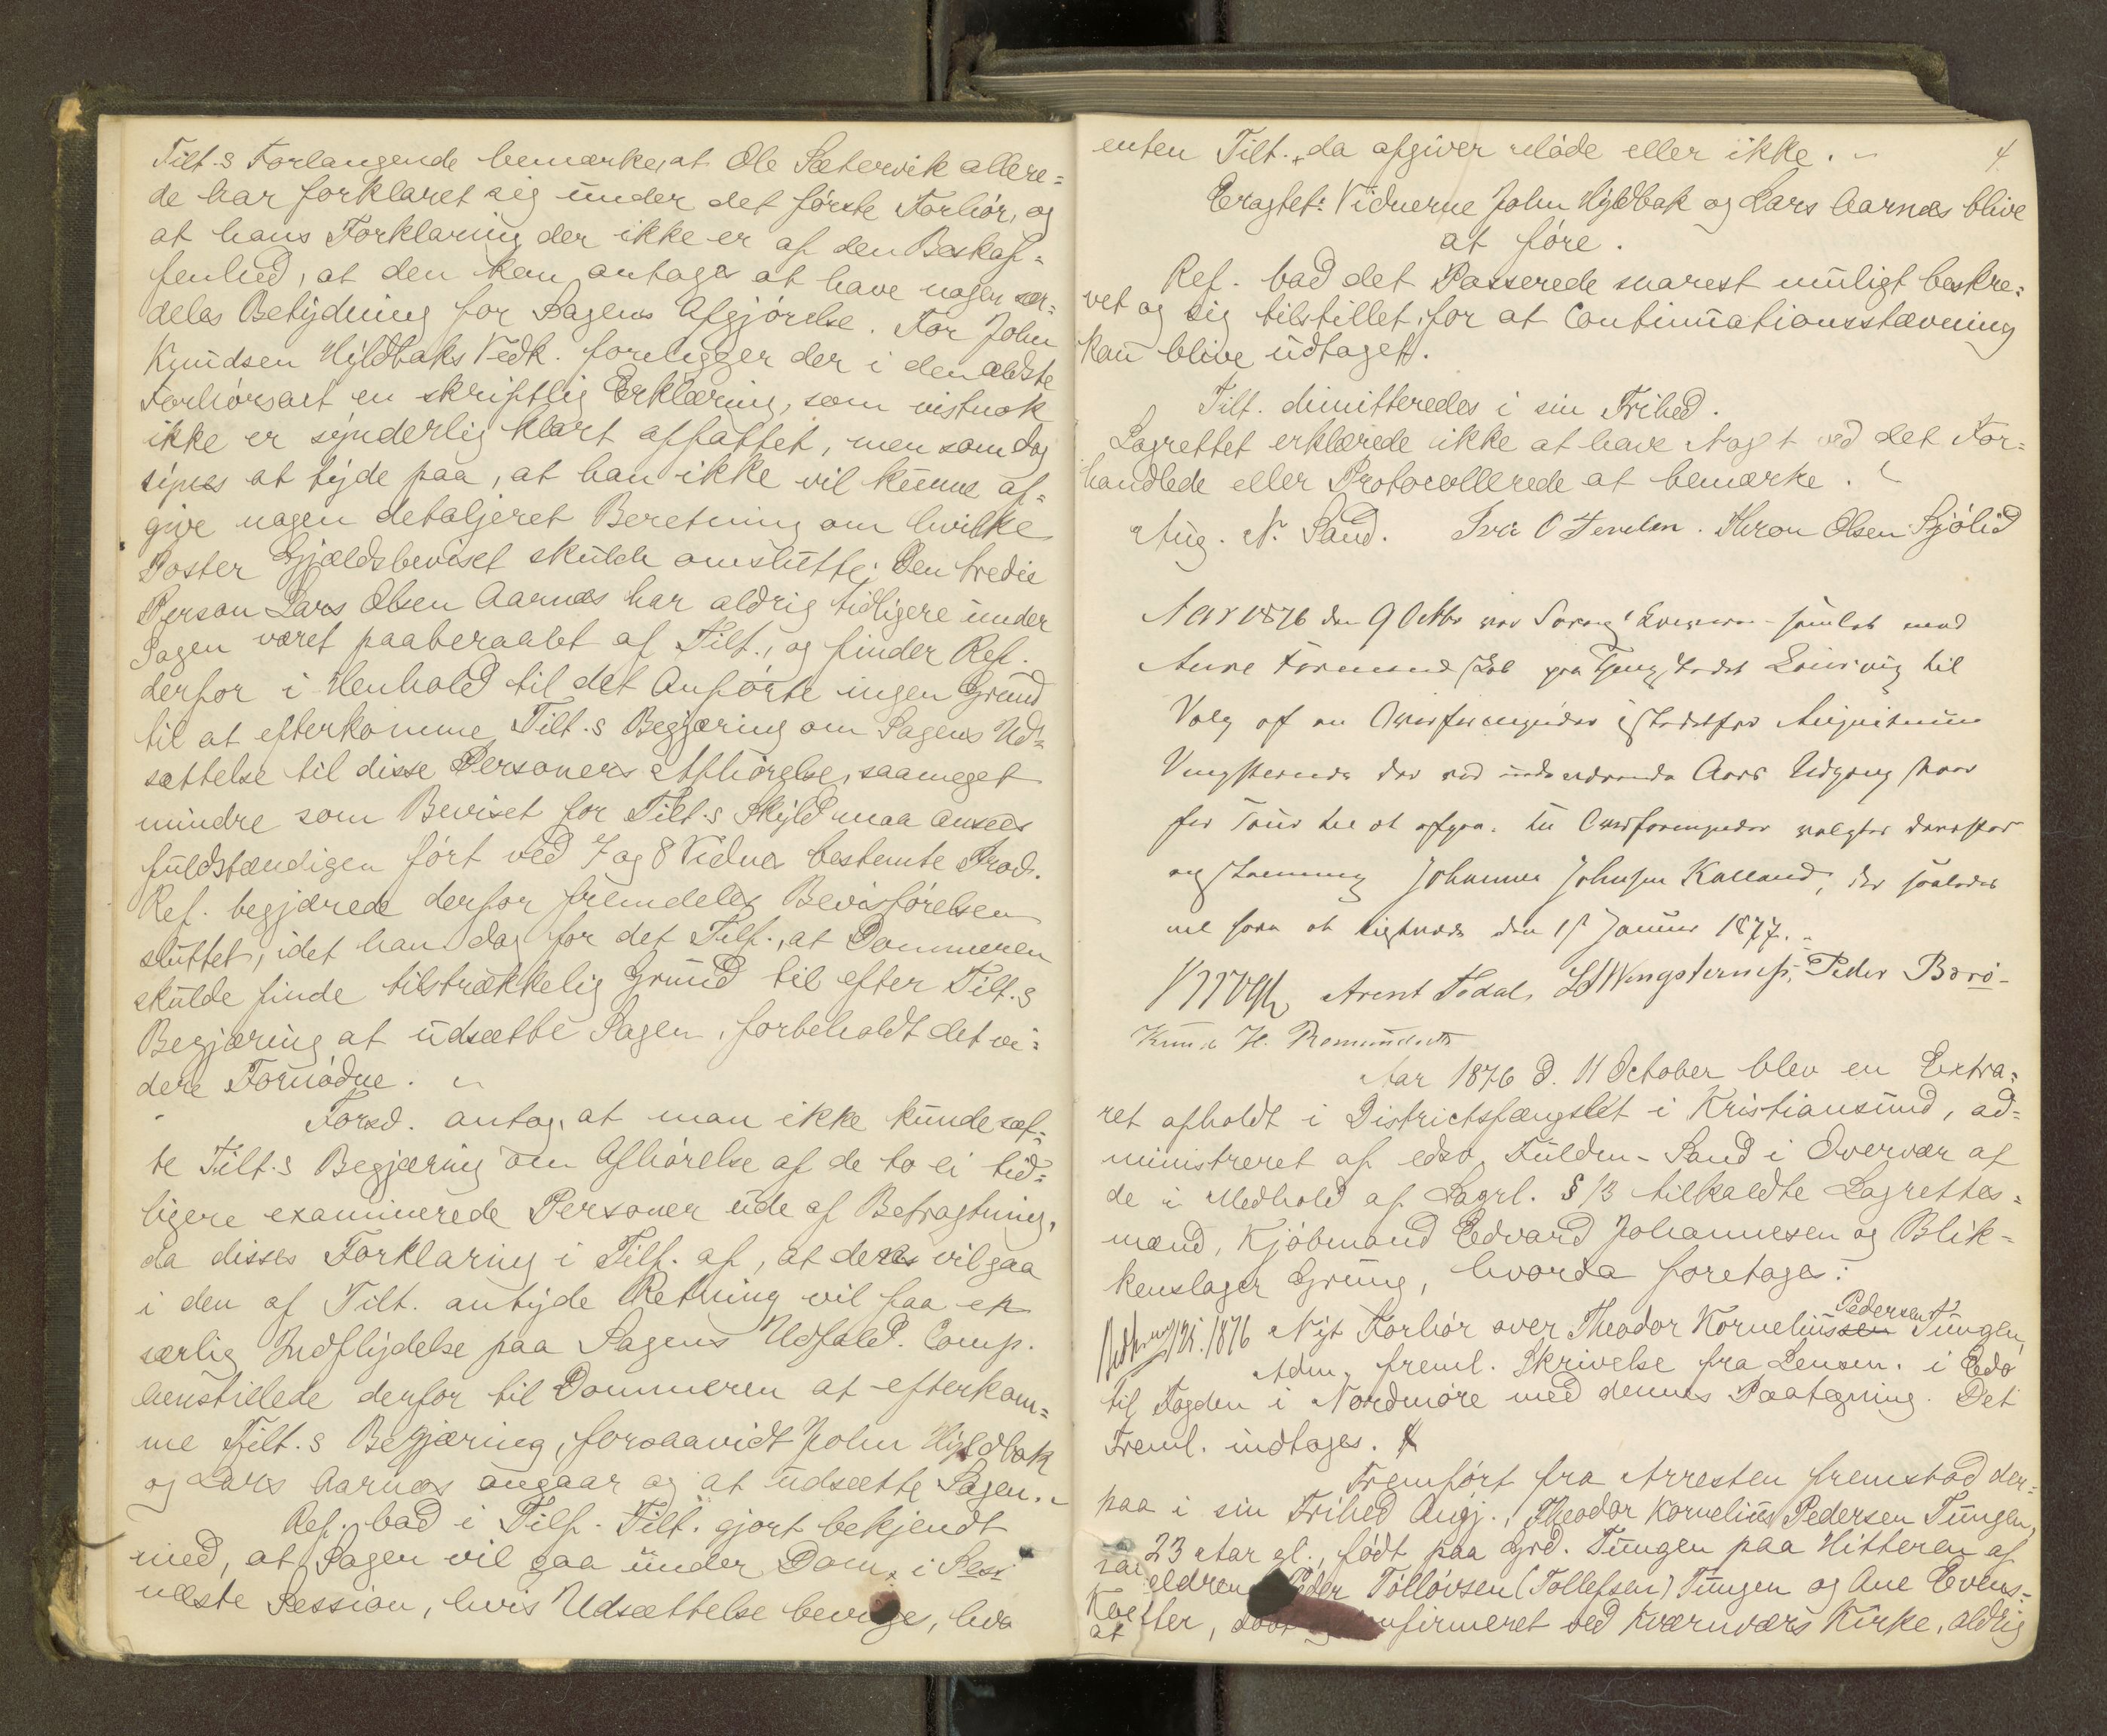 Tilt.s Forlangende bemærke, at Ole Sætervik allere=
de har forklaret sig under det første Forhør, og
at hans Forklaring der ikke er af den Beskaf=
fenhed, at den kan antages at have nogen sær=
deles Betydning for Sagens Afgjørelse. For John
Knudsen Hyldbaks Vedk. foreligger der i den ældste
Forhørsact en skriftlig Erklæring, som vistnok
ikke er synderlig klart affattet, men som dog
synes at tyde paa, at han ikke vil kunne af=
give nogen detaljeret Beretning om hvilke
Poster Gjældsbeviset skulde omslutte; Den tredie
Person Lars Olsen Aarnæs har aldrig tidligere under
Sagen været paaberaabt af Tilt., og finder Ref.
derfor i Henhold til det Anførte ingen Grund
til at efterkomme Tilt.s Begjæring om Sagens Ud=
sættelse til disse Personers Afhørelse, saameget
mindre som Beviset for Tilt.s Skyld maa ansees
fuldstændigen ført ved 7 og 8 Vidnes bestemte Prov.
Ref. begjærede derfor fremdeles Bevisførelsen
sluttet, idet han dog for det Tilf., at Dommeren
skulde finde tilstrækkelig Grund til efter Tilt.s
Begjæring at udsætte Sagen, forbeholdt det vi=
dere Fornødne.
Forsd. antog, at man ikke kunde sæt=
te Tilt.s Begjæring om Afhørelse af de to ei tid=
ligere examinerede Personer ude af Betragtning,
da disses Forklaring i Tilf. af, at deres vil gaa
i den af Tilt. antyde Retning vil faa en
særlig Indflydelse paa Sagens Udfald. Comp.
henstillede derfor til Dommeren at efterkom=
me Tilt.s Begjæring, forsaavidt John Hyldbak
og Lars Aarnæs angaar og at udsætte Sagen.
Ref. bad i Tilf. Tilt. gjort bekjendt
med, at Sagen vil gaa under Dom, i Sessi
næste Session, hvis Udsættelse bevilges, hva
4
enten Tilt. da afgiver Møde eller ikke.
Eragtet: Vidnerne John Hyldbak og Lars Aarnæs blive
at føre.
Ref. bad det Passerede snarest muligt beskre=
vet og sig tilstillet, for at Continuationsstævning
kan blive udtaget.
Tilt. dimitteredes i sin Frihed.
Lagrettet erklærede ikke at have Noget ved det For=
handlede eller Protocollerede at bemærke.
Aug. N. Sand. Iver O Thron Olsen Sjølid
Aar 1876 den 9 Octbr var samlet med
Aure Formandskab paa Tingstedet Leirvig til
Valg af en Overformynder istedetfor
Vingsternes der ved indeværende Aars Udgang staar
for Tour til at afgaa. Til Overformynder valgtes
Johannes Johnsen Kalland, der saaledes
vil have at tiltræde den 1st Januar 1877.
Krogh Arent Todal, Vingsternes, Peder Børø-
Knud H. Romundset
Aar 1876 d. 11 October blev en Extra=
ret afholdt i Districtsfængslet i Kristiansund, ad=
ministreret af edsv. Fuldm. Sand i Overvær af
de i Medhold af Lagrl. § 13 tilkaldte Lagrettes=
mænd, Kjøbmand Edvard Johannesen og Blik=
kenslager Gruug, hvorda foretages:
1876 Nyt Forhør over Theodor Korneliussen Pedersen Tungen
Adm. freml. Skrivelse fra Lensm. i Edø
til Fogden i Nordmøre med dennes Paategning. Det
Freml. indtages.
Fremført fra Arresten fremstod der=
paa i sin Frihed Angj., Theodor Kornelius Pedersen Tungen,
23 Aar gl., født paa Grd. Tungen paa Hitteren af
Peder Tølløvsen (Tollefsen) Tungen og Ane Evens=
ter, konfirmeret ved Kværnværs Kirke, aldrig